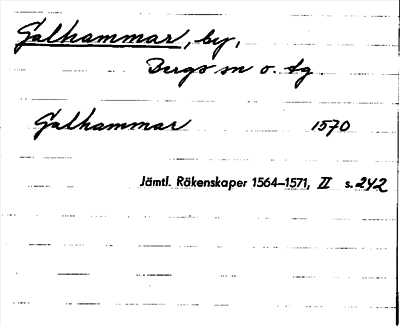 Galhammar, by,
Bergs sn o. tg.
Galhammar 1570
Jämtl. Räkenskaper 1564–1571, II s. 242